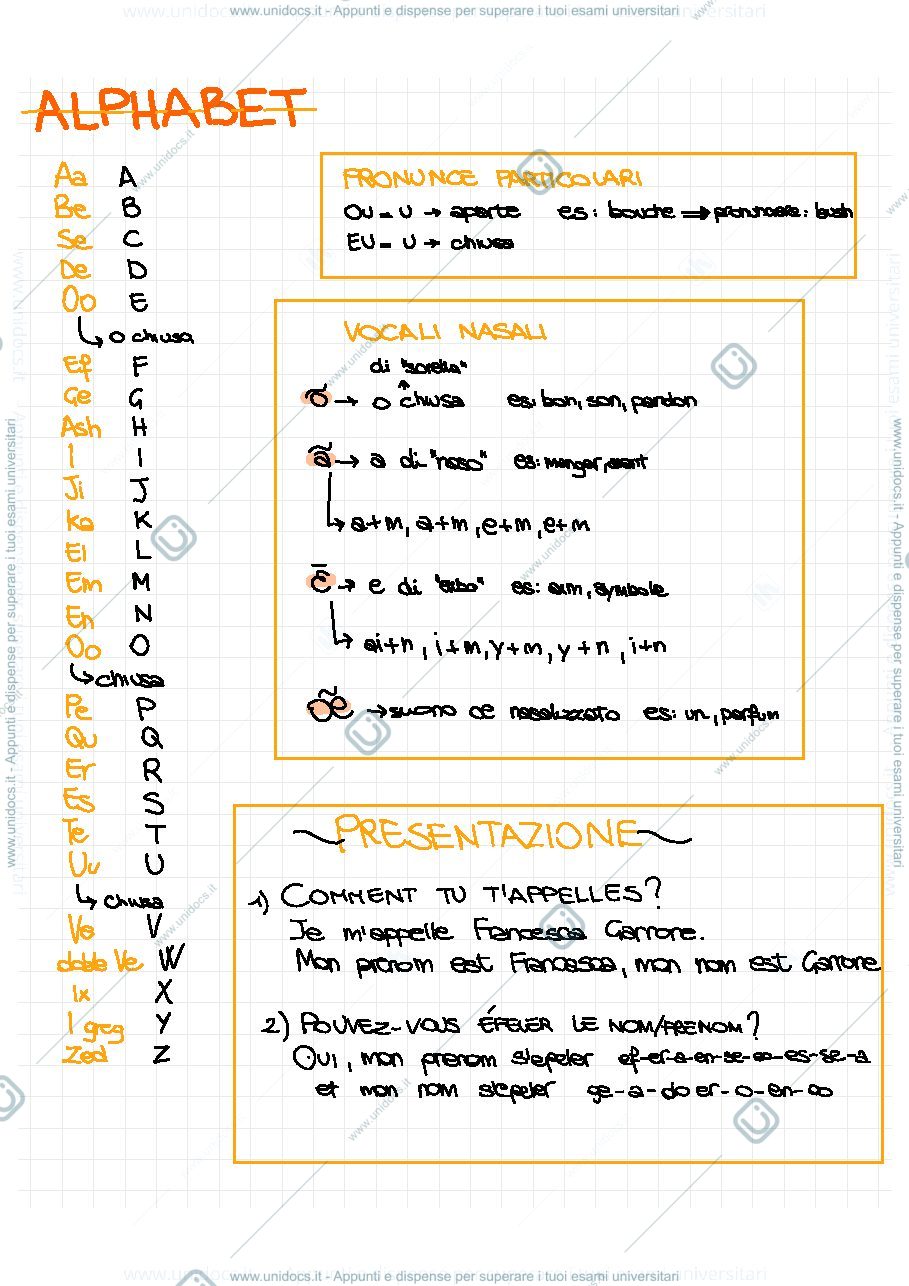 www.unidocs.it - Appunti e dispense per superare i tuoi esami universitari
ALPHABET
Aa A
Be B
Se C
De D
Oo E
↳ o chiusa
Ef F
Ge G
Ash H
I I
Ji J
Ka K
El L
Em M
En N
Oo O
↳ chiusa
Pe P
Qu Q
Er R
Es S
Te T
Uu U
↳ chiusa
Ve V
doble Ve W
Ix X
I greg Y
Zed Z
PRONUNCE PARTICOLARI
OU = U → aperte es: bouche ⟹ pronunciare: bush
EU = U → chiusa
VOCALI NASALI
di "sorella"
õ → o chiusa es: bon, son, pardon
ã → a di "naso" es: manger,
↳ a+m, a+m, e+m, e+m
ẽ → e di es: symbole
↳ ai+n, i+m, y+m, y+n, i+n
œ̃ → suono œ nasalizzato es: un, parfum
PRESENTAZIONE
1) COMMENT TU T'APPELLES?
Je m'appelle Francesca Garrone.
Mon prenom est Francesca, mon nom est Garrone
2) POUVEZ-VOUS ÉPELER LE NOM/PRENOM?
Oui, mon prenom s'epeler ef-er-a-en-se-oo-es-se-a
et mon nom s'epeler ge-a-do er-o-en-oo
www.unidocs.it - Appunti e dispense per superare i tuoi esami universitari